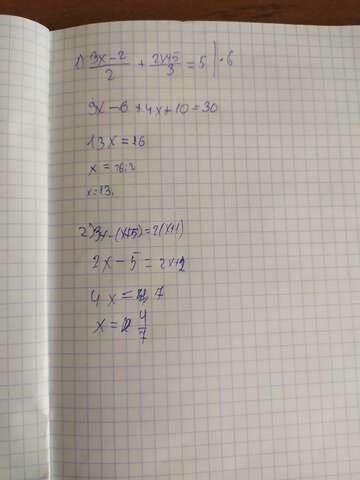 1) (3x-2)/2 + (2x+5)/3 = 5 | · 6
9x - 6 + 4x + 10 = 30
13x = 26
x =
x = 13.
2) 3x - (x+5) = 2(x+1)
2x - 5 = 2x + 2
4x = 7
x = 4/7